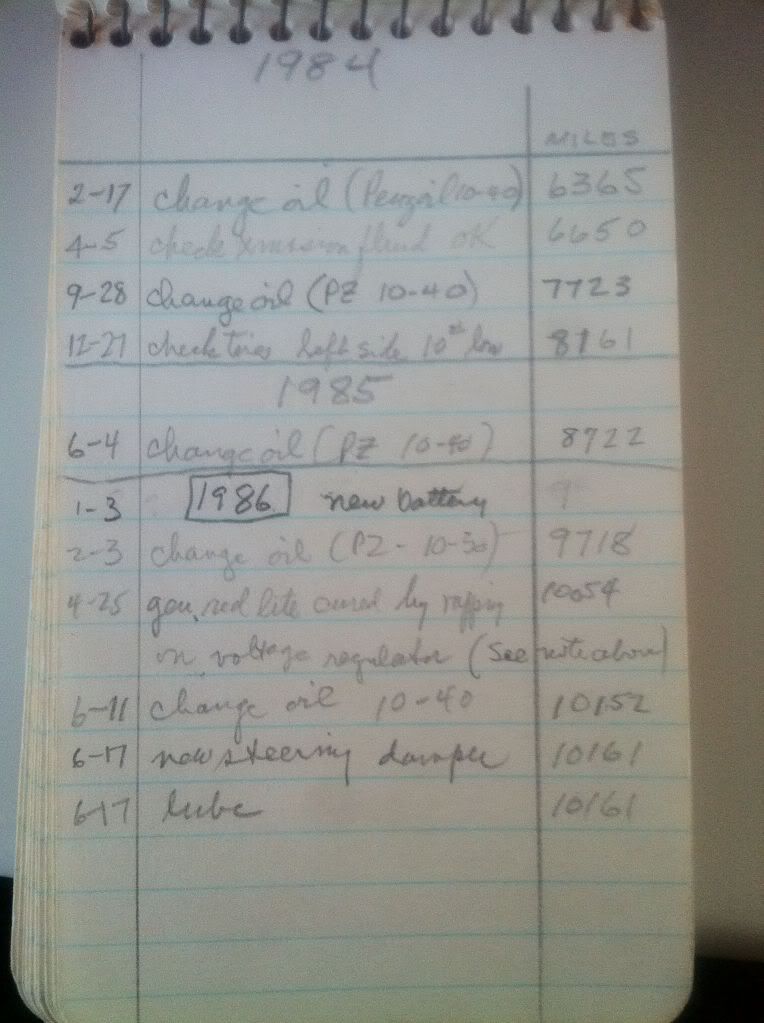 1984
MILES
2-17 change oil (Penzoil 10-40) 6365
4-5 check xmission fluid OK 6650
9-28 change oil (PZ 10-40) 7723
12-27 check tires left side 10 low 8161
1985
6-4 change oil (PZ 10-40) 8722
1-3 1986 new battery 9
2-3 change oil (PZ - 10-30) 9718
4-25 gen. red lite cured by rapping 10054
on voltage regulator (See note above)
6-11 change oil 10-40 10152
6-17 new steering damper 10161
6-17 lube 10161